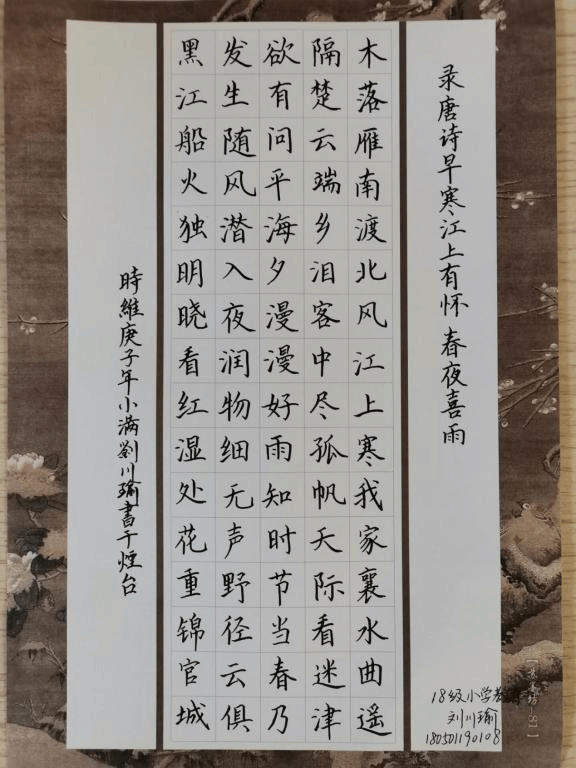 录唐诗早寒江上有怀 春夜喜雨
木落雁南渡北风江上寒我家襄水曲遥
隔楚云端乡泪客中尽孤帆天际看迷津
欲有问平海夕漫漫好雨知时节当春乃
发生随风潜入夜润物细无声野径云俱
黑江船火独明晓看红湿处花重锦官城
時維庚子年小满劉川瑜書于煙台
18级小学
刘川瑜
180501190108